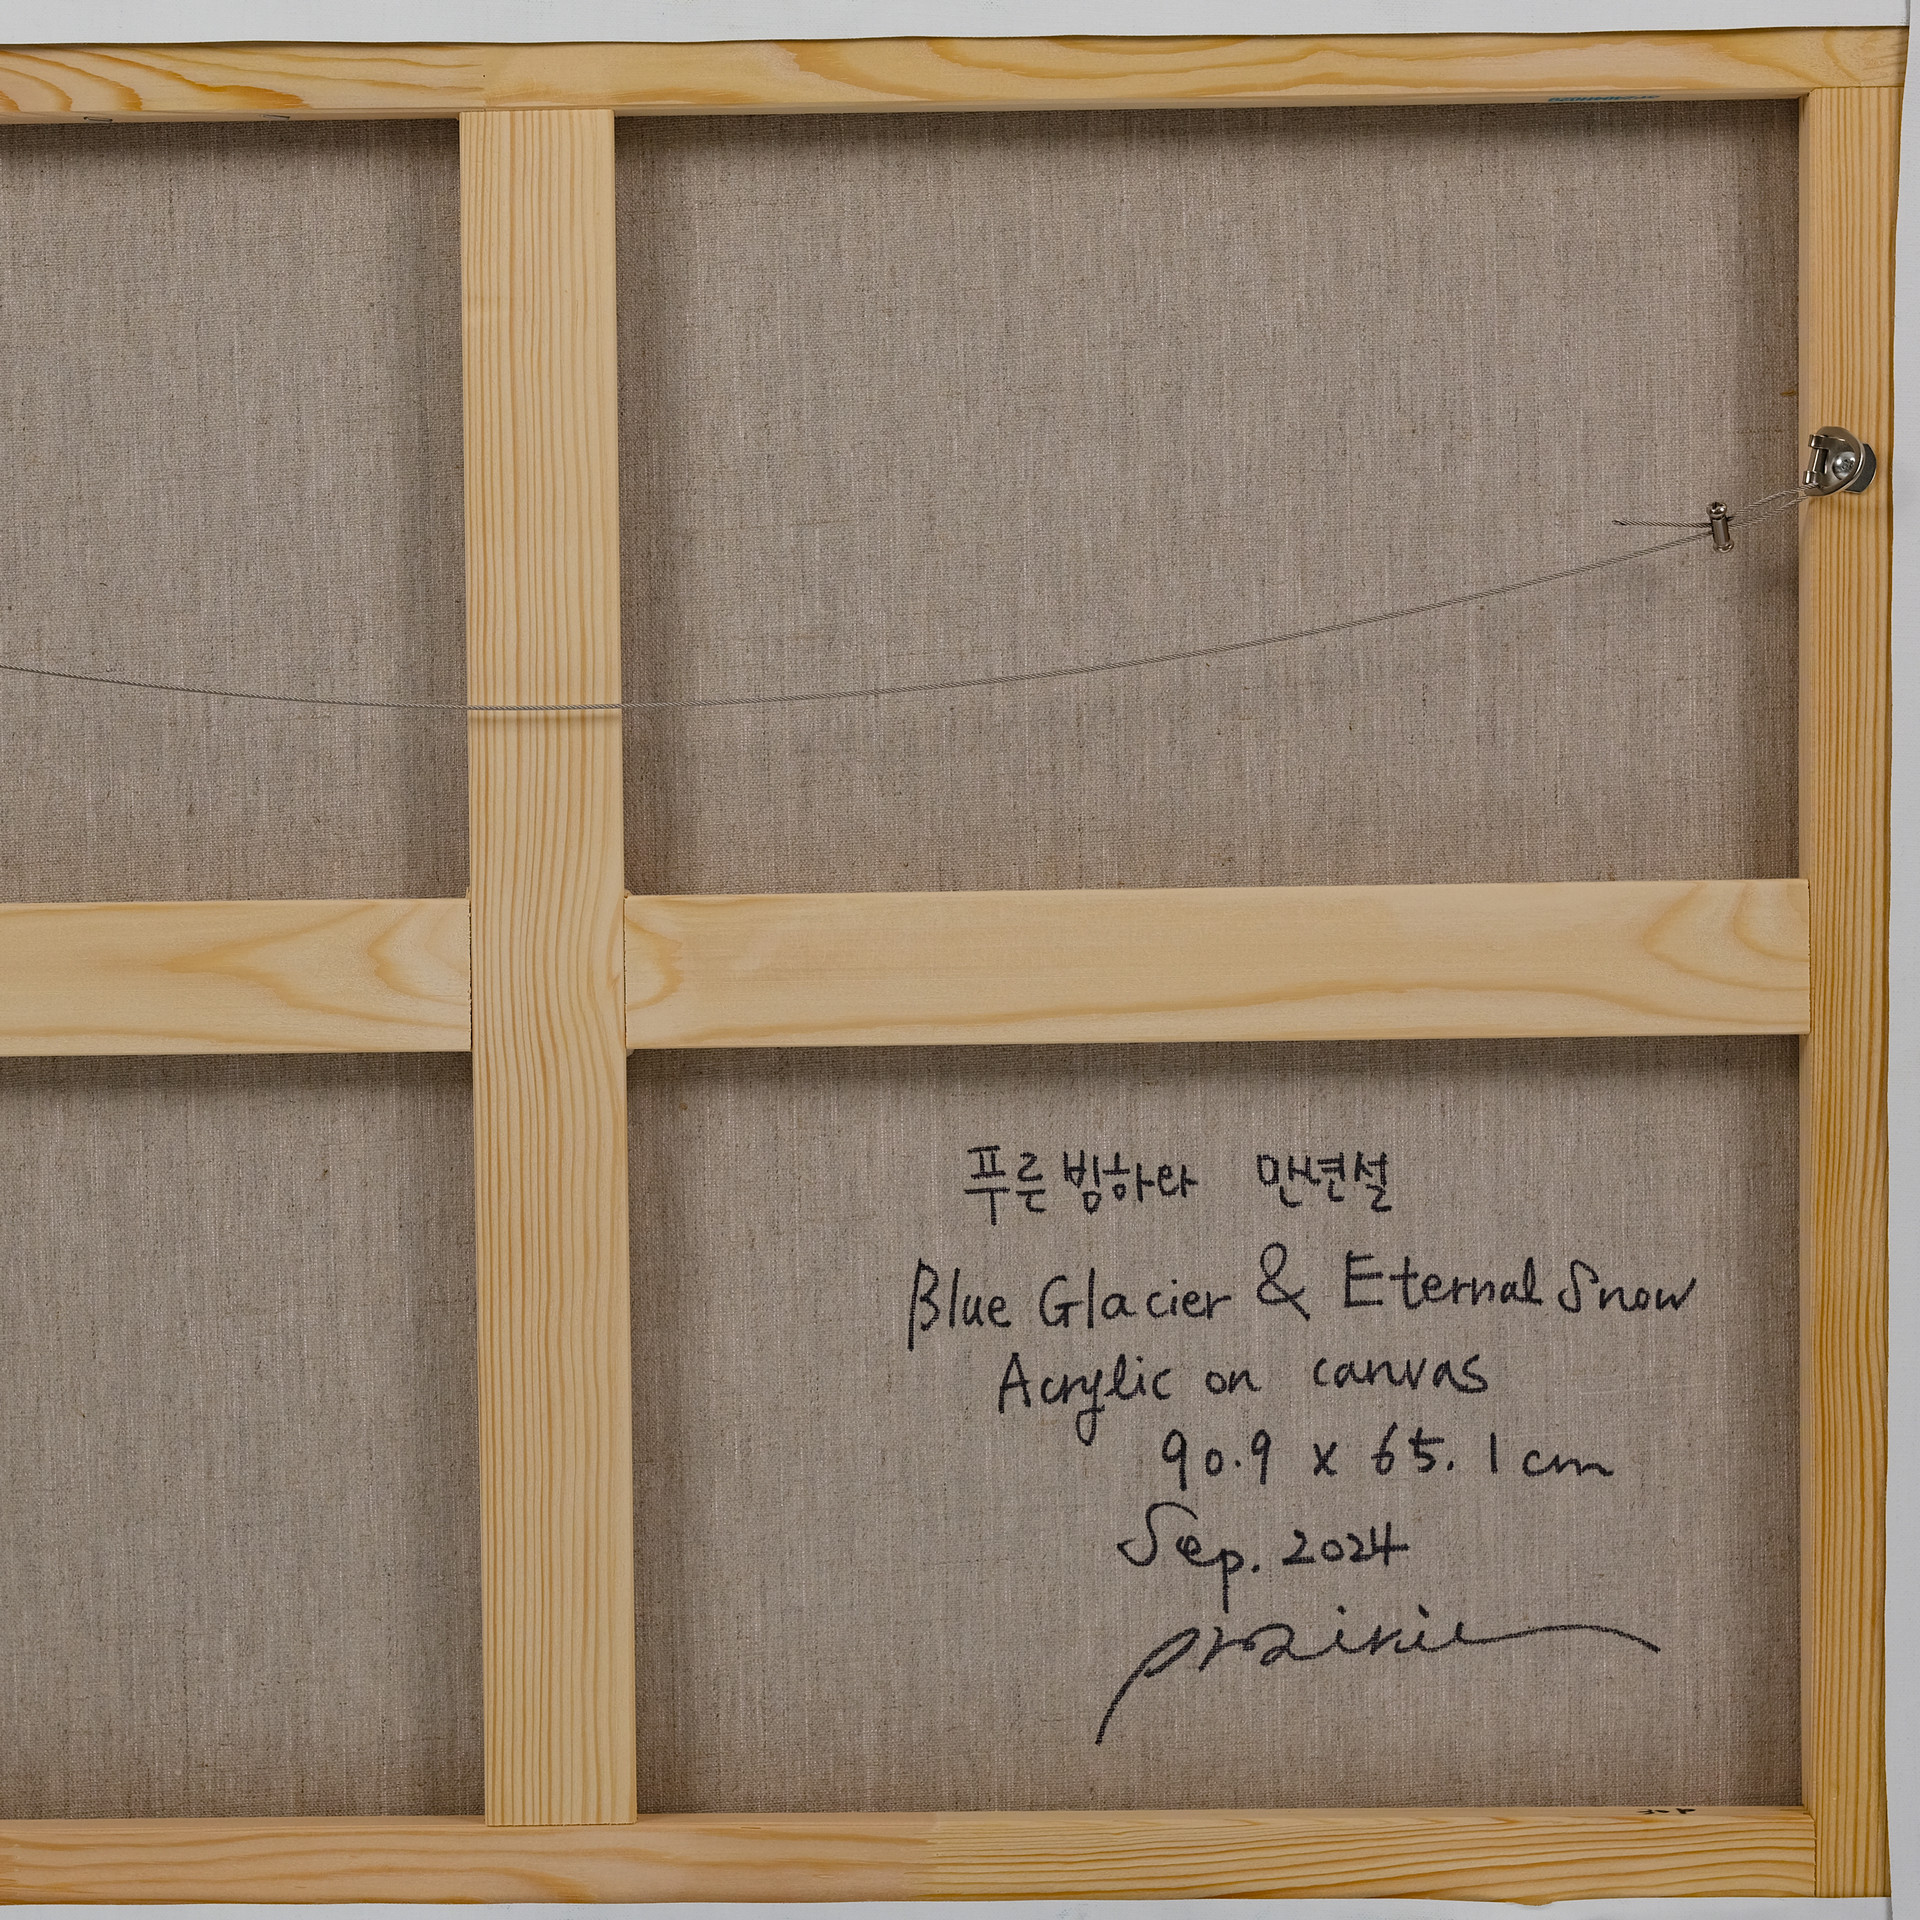 푸른빙하라 만년설
Blue Glacier & Eternal Snow
Acrylic on canvas
90.9 x 65.1 cm
Sep. 2024
prairie